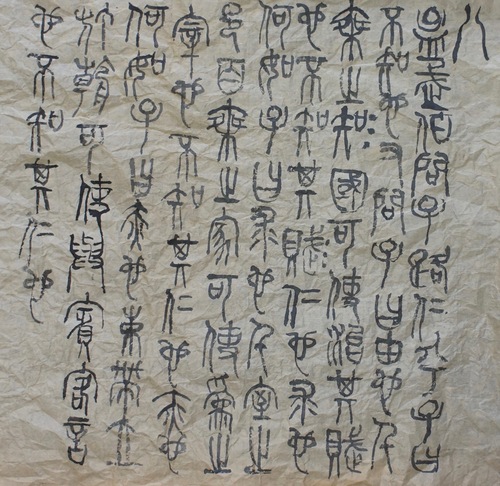 八
孟武伯問子路仁乎子曰
不知也又問子曰由也千
乘之知國可使治其賦
也不知其賦仁也求也
何如子曰求也千室之
邑百乘之家可使為之
宰也不知其仁也赤也
何如子曰赤也束帶立
於朝可使與賓客言
也不知其仁也